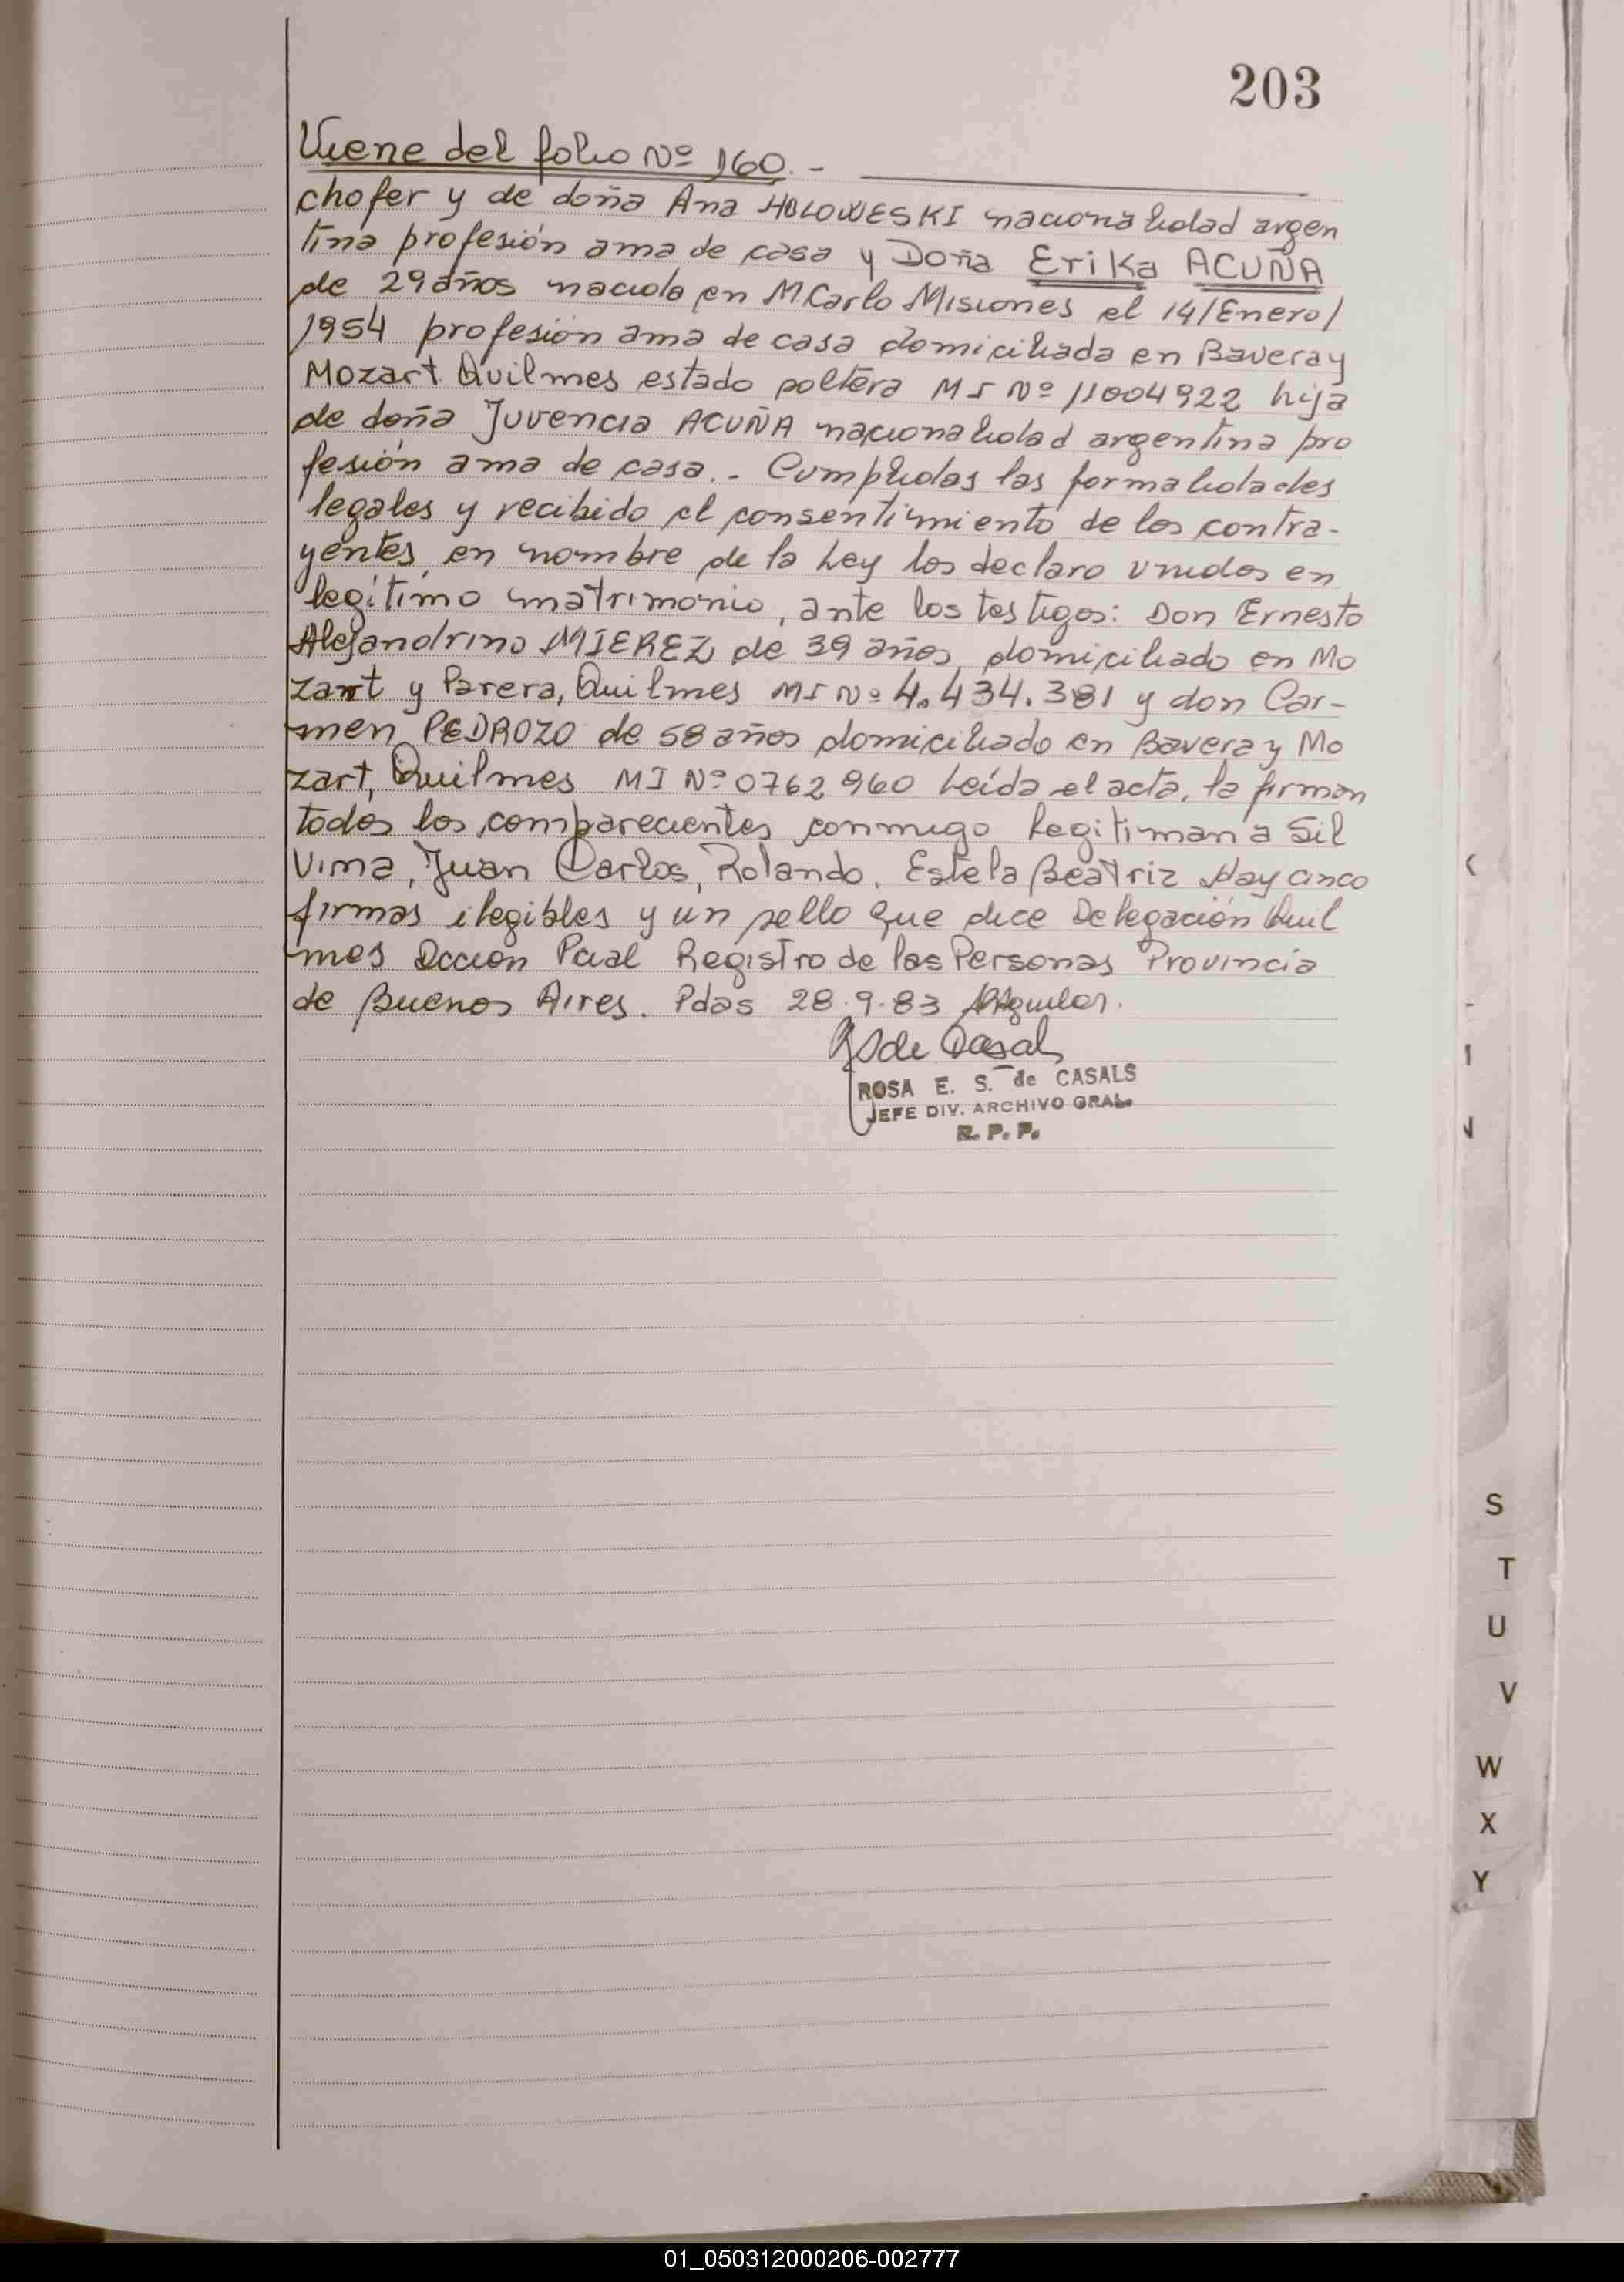 203
Viene del folio Nº 160.-
chofer y de doña Ana HOLOWESKI nacionalidad argen
tina profesión ama de casa y Doña Erika ACUÑA
de 29 años nacida en M.Carlo Misiones el 14/Enero/
1954 profesión ama de casa domiciliada en Bavera y
Mozart Quilmes estado soltera MI Nº 11004922 hija
de doña Juvencia ACUÑA nacionalidad argentina pro
fesión ama de casa.- Cumplidas las formalidades
legales y recibido el consentimiento de los contra-
yentes, en nombre de la Ley los declaro unidos en
legítimo matrimonio, ante los testigos: Don Ernesto
Alejandrino MIEREZ de 39 años, domiciliado en Mo
zart y Parera, Quilmes MI Nº 4.434.381 y don Car-
men PEDROZO de 58 años domiciliado en Bavera y Mo
zart, Quilmes MI Nº 0762960 Leída el acta, la firman
todos los comparecientes conmigo Legitiman a Sil
vina, Juan Carlos, Rolando, Estela Beatriz Hay cinco
firmas ilegibles y un sello que dice Delegación Quil
mes Dccion Pcial Registro de las Personas Provincia
de Buenos Aires. Pdas 28.9.83
ROSA E. S. de CASALS
JEFE DIV. ARCHIVO GRAL.
R. P. P.
S
T
U
V
W
X
Y
01_050312000206-002777